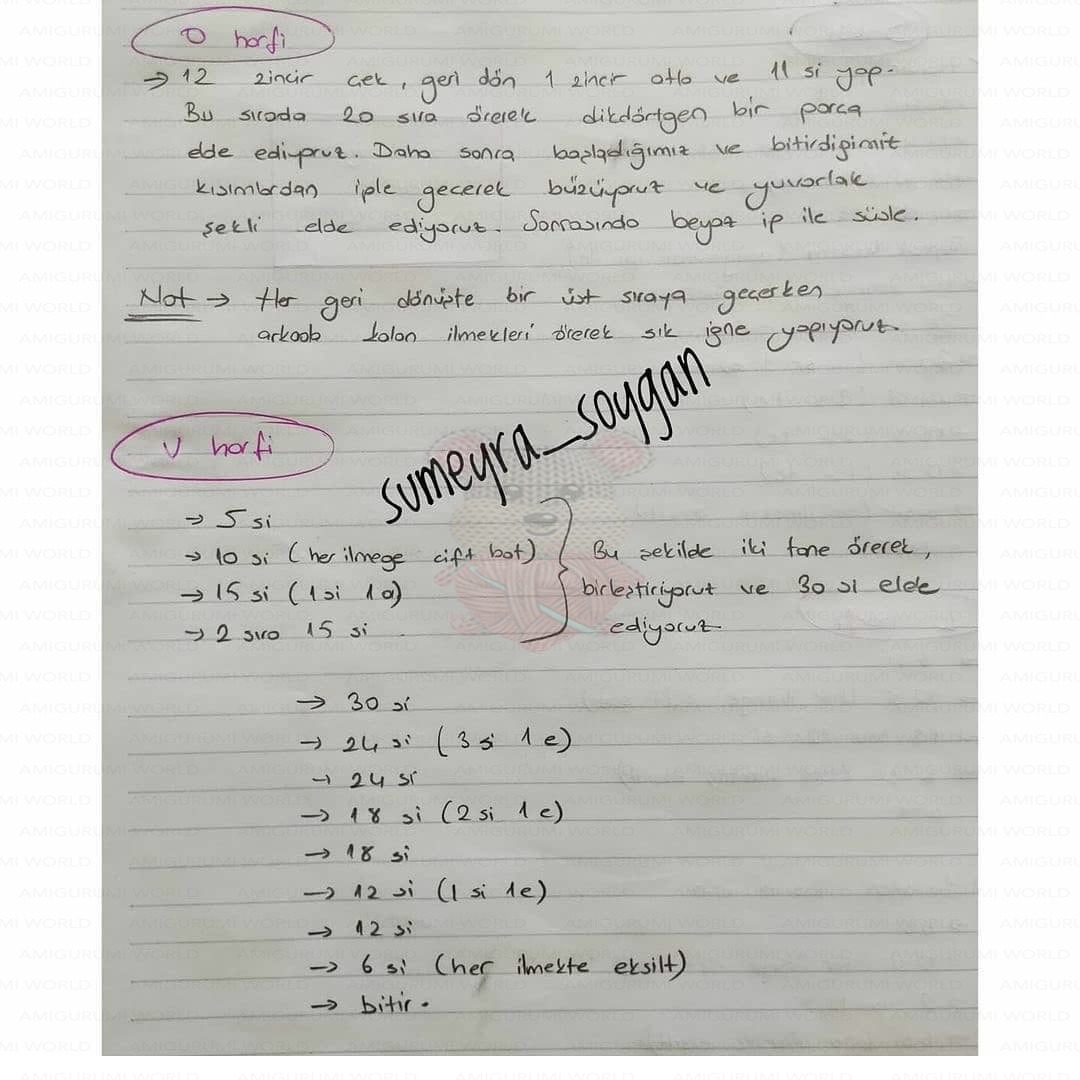 O harfi
→ 12 zincir cek, geri dön 1 zincir atla ve 11 si yap.
Bu sırada 20 sıra örerek dikdörtgen bir parca
elde ediyoruz. Daha sonra başladığımız ve bitirdigimiz
kısımlardan iple gecerek büzüyoruz ve yuvarlak
şekli elde ediyoruz. Sonrasında beyaz ip ile süsle.
Not → Her geri dönüşte bir üst sıraya geçerken
arkada kalan ilmekleri örerek sık iğne yapıyoruz.
sumeyra_soygan
V harfi
→ 5 si
→ 10 si (her ilmege cift bat)
→ 15 si (1 si 1 a)
→ 2 sıra 15 si
Bu sekilde iki tane örerek,
birleştiriyoruz ve 30 si elde
ediyoruz.
→ 30 si
→ 24 si (3 s 1 e)
→ 24 si
→ 18 si (2 si 1 e)
→ 18 si
→ 12 si (1 si 1e)
→ 12 si
→ 6 si (her ilmekte eksilt)
→ bitir.
AMIGURUMI WORLD